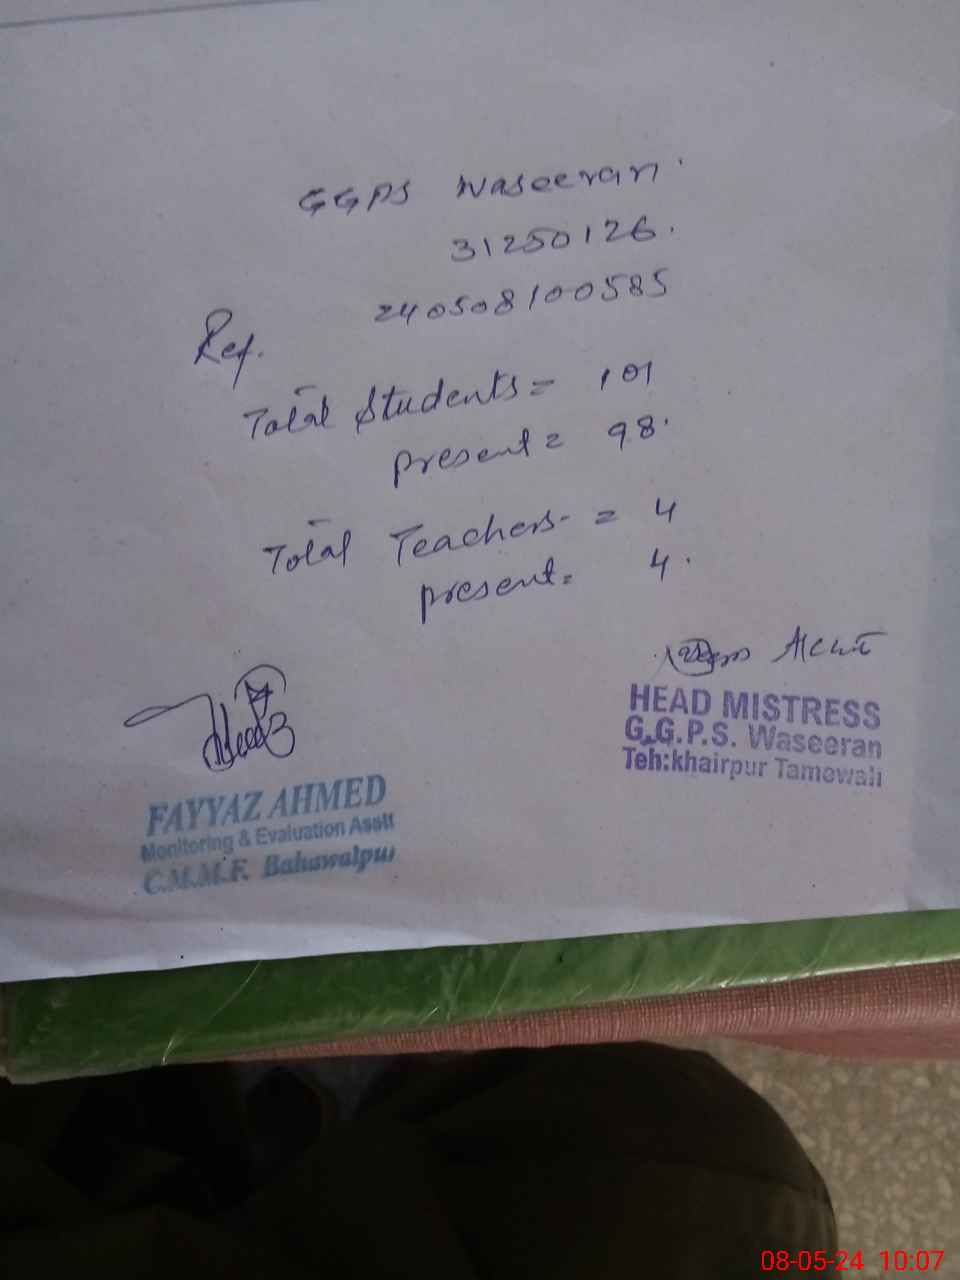 GGPS Waseeran
31250126.
Ref. 240508100585
Total Students = 101
present = 98.
Total Teachers = 4
present = 4.
FAYYAZ AHMED
Monitoring & Evaluation Asstt
C.M.M.F. Bahawalpur
HEAD MISTRESS
G.G.P.S. Waseeran
Teh:khairpur Tamewali
08-05-24 10:07